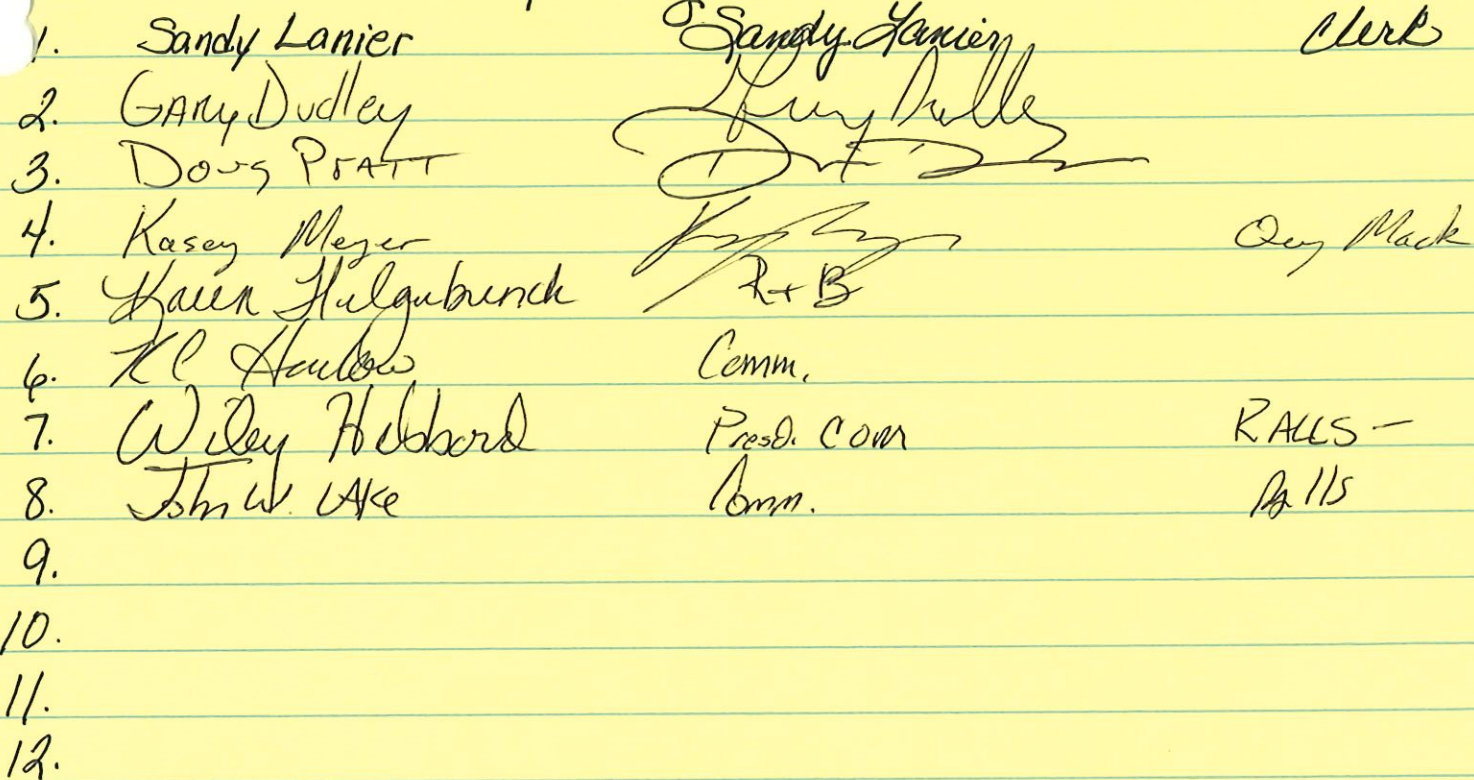 1. Sandy Lanier Sandy Lanier Clerk
2. Gary Dudley Gary Dudley
3. Doug Pratt
4. Kasey Meyer Mack
5. Karen R+B
6. KC Harlow Comm.
7. Wiley Hibbard Presd. Com RALLS -
8. John W. Lake Comm. Ralls
9.
10.
11.
12.